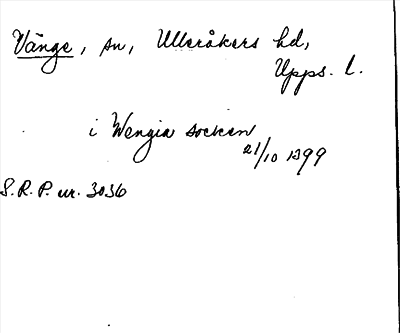 Vänge, sn, Ulleråkers hd,
Upps. l.
i Wengia socken
21/10 1399
S.R.P. nr. 3036